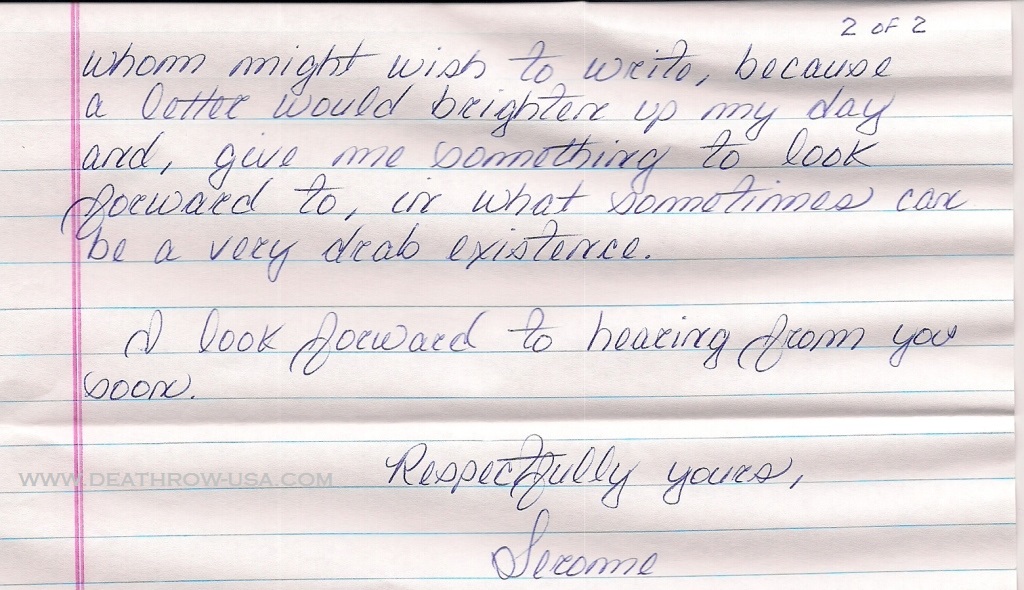 2 of 2
whom might wish to write, because
a letter would brighten up my day
and, give me something to look
forward to, in what sometimes can
be a very drab existence.
I look forward to hearing from you
soon.
Respectfully yours,
WWW.DEATHROW-USA.COM
Jerome